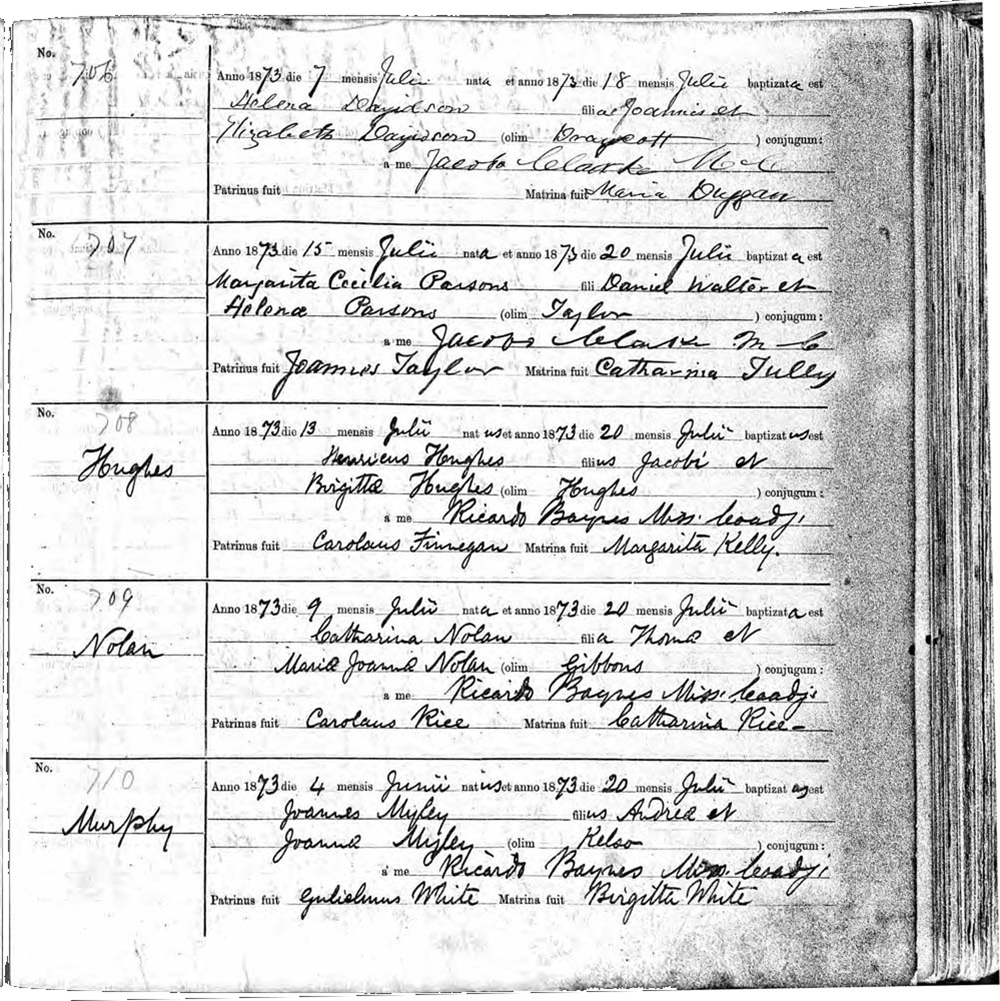 No.
706
Anno 1873 die 7 mensis Julii nata et anno 1873 die 18 mensis Julii baptizata est
Helena Davidson filiae Joannis et
Elizabeth Davidson (olim Draycott ) conjugum:
a me Jacobo Clarke M C
Patrinus fuit Matrina fuit Maria Duggan
No.
707
Anno 1873 die 15 mensis Julii nata et anno 1873 die 20 mensis Julii baptizata est
Margarita Cecilia Parsons fili Daniel Walter et
Helenæ Parsons (olim Taylor ) conjugum:
a me Jacobo Clarke M C
Patrinus fuit Joannes Taylor Matrina fuit Catharina Tully
No.
708
Hughes
Anno 1873 die 13 mensis Julii natus et anno 1873 die 20 mensis Julii baptizatus est
Henricus Hughes filius Jacobi et
Birgittæ Hughes (olim Hughes ) conjugum:
a me Ricardo Baynes Miss. Coadj.
Patrinus fuit Carolus Finnegan Matrina fuit Margarita Kelly.
No.
709
Nolan
Anno 1873 die 9 mensis Julii nata et anno 1873 die 20 mensis Julii baptizata est
Catharina Nolan filia Thomæ et
Mariæ Joannæ Nolan (olim Gibbons ) conjugum:
a me Ricardo Baynes Miss. Coadj.
Patrinus fuit Carolus Rice Matrina fuit Catharina Rice-
No.
710
Murphy
Anno 1873 die 4 mensis Junii natus et anno 1873 die 20 mensis Julii baptizat est
Joannes Myley filius Andreæ et
Joannæ Myley (olim Kelso ) conjugum:
a me Ricardo Baynes Miss. Coadj.
Patrinus fuit Gulielmus White Matrina fuit Birgitta White